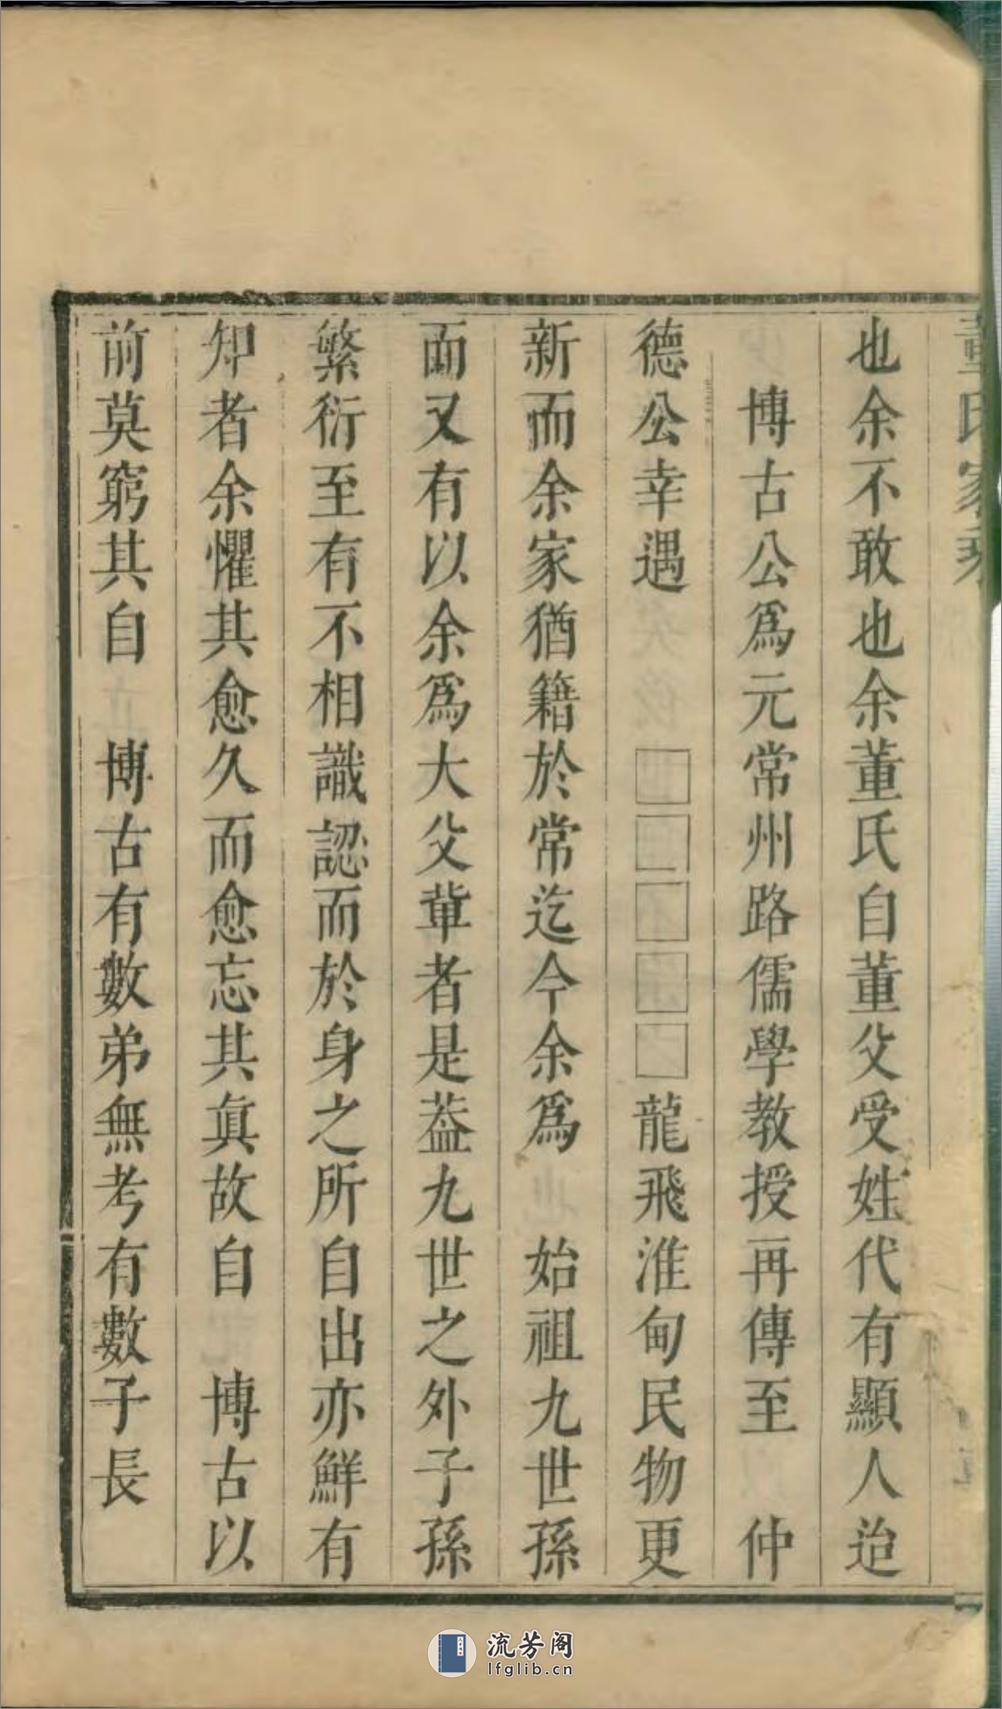 董氏家乘
也余不敢也余董氏自董父受姓代有顯人迨
博古公爲元常州路儒學教授再傳至　仲
德公幸遇　□□□□□龍飛淮甸民物更
新而余家猶籍於常迄今余爲　始祖九世孫
面又有以余爲大父軰者是葢九世之外子孫
繁衍至有不相識認而於身之所自出亦鮮有
知者余懼其愈久而愈忘其眞故自　博古以
前莫窮其自　博古有數弟無考有數子長
流芳阁
lfglib.cn